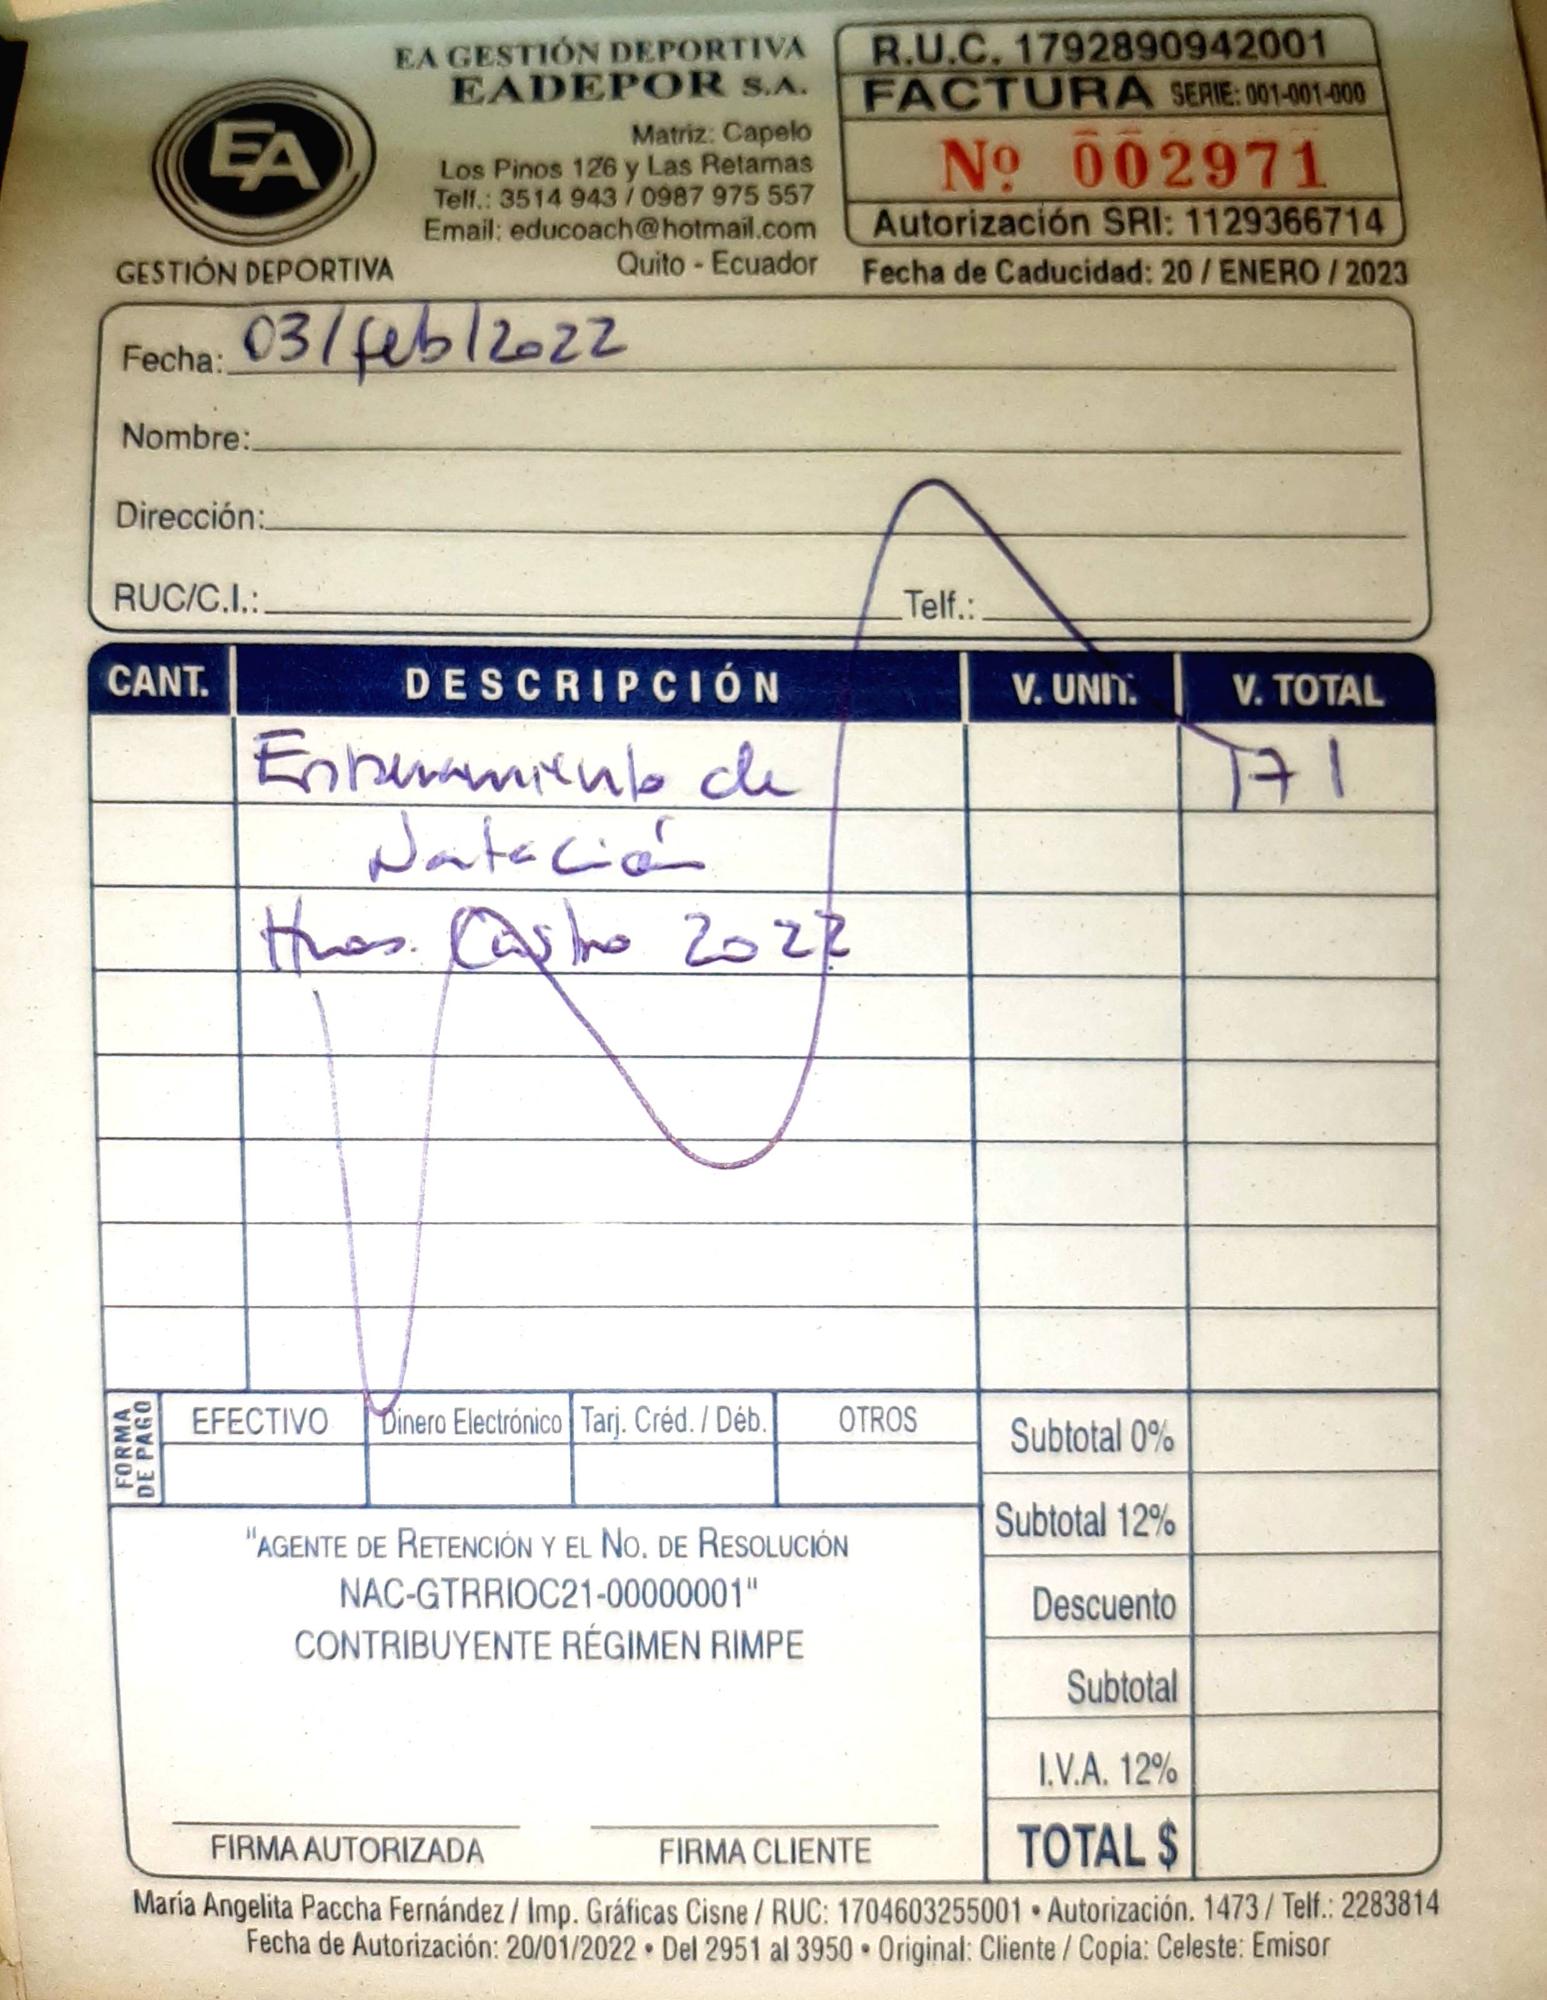 EA GESTIÓN DEPORTIVA
EADEPOR S.A.
EA
GESTIÓN DEPORTIVA
Matriz: Capelo
Los Pinos 126 y Las Retamas
Telf.: 3514 943 / 0987 975 557
Email: educoach@hotmail.com
Quito - Ecuador
R.U.C. 1792890942001
FACTURA SERIE: 001-001-000
Nº 002971
Autorización SRI: 1129366714
Fecha de Caducidad: 20 / ENERO / 2023
Fecha: 03/feb/2022
Nombre:
Dirección:
RUC/C.I.: Telf.:
CANT. DESCRIPCIÓN V. UNIT. V. TOTAL
Entrenamiento de 171
Natación
Hnos. Castro 2022
FORMA DE PAGO
EFECTIVO Dinero Electrónico Tarj. Créd. / Déb. OTROS
Subtotal 0%
Subtotal 12%
Descuento
Subtotal
I.V.A. 12%
TOTAL $
"AGENTE DE RETENCIÓN Y EL NO. DE RESOLUCIÓN
NAC-GTRRIOC21-00000001"
CONTRIBUYENTE RÉGIMEN RIMPE
FIRMA AUTORIZADA FIRMA CLIENTE
María Angelita Paccha Fernández / Imp. Gráficas Cisne / RUC: 1704603255001 • Autorización. 1473 / Telf.: 2283814
Fecha de Autorización: 20/01/2022 • Del 2951 al 3950 • Original: Cliente / Copia: Celeste: Emisor